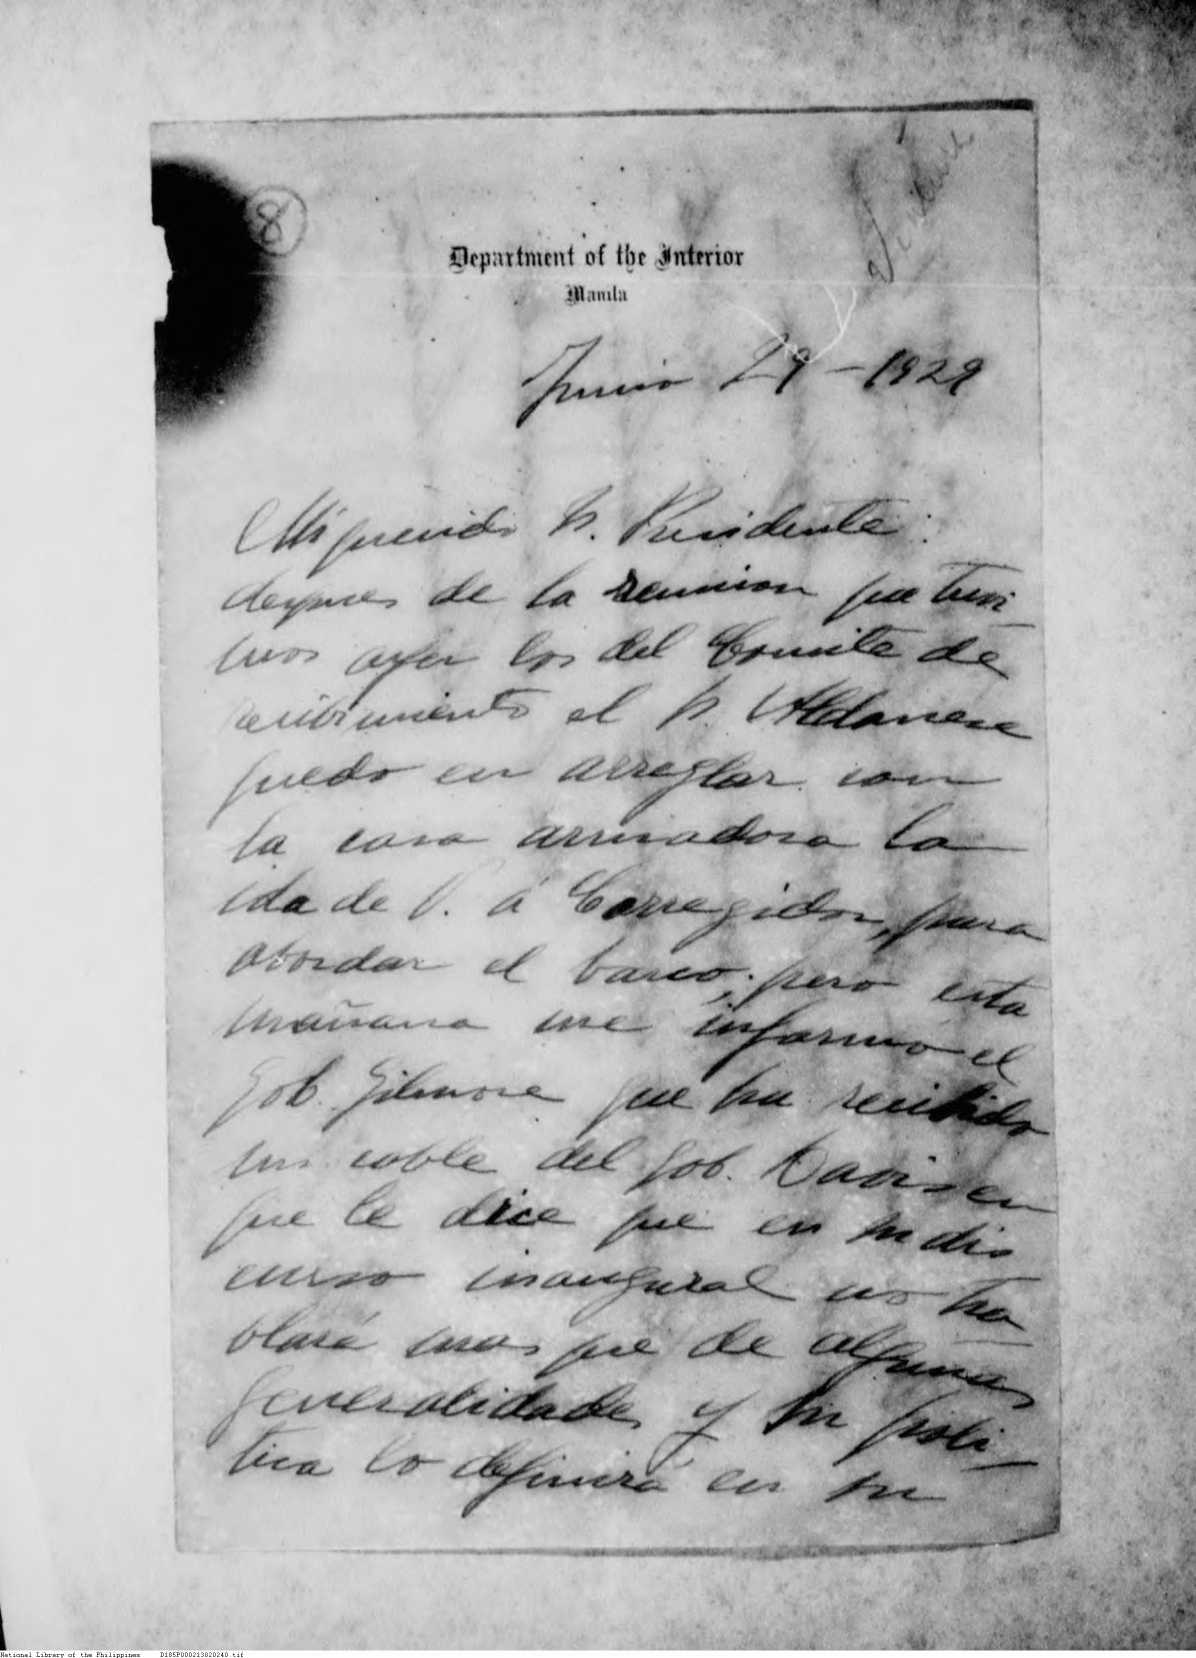 8
Department of the Interior
Manila
Junio 29 - 1929
Mi querido Sr. Presidente:
despues de la reunion que tuvi-
mos ayer los del Comite de
recibimiento el Sr. Aldanese
quedo en arreglar con
la casa armadora la
ida de V. á Corregidor, para
abordar el barco; pero esta
mañana me informó el
Gob. Gilmore que ha recibido
un cable del Gob. Davis en
que le dice que en su dis
curso inaugural no ha-
blará mas que de algunas
generalidades y su poli-
tica lo definirá en su
National Library of the Philippines D185P000213020240.tif